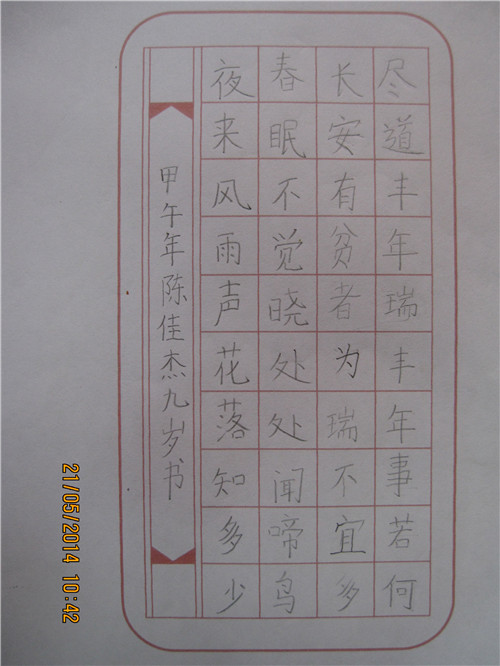 尽道丰年瑞丰年事若何
长安有贫者为瑞不宜多
春眠不觉晓处处闻啼鸟
夜来风雨声花落知多少
甲午年陈佳杰九岁书
21/05/2014 10:42